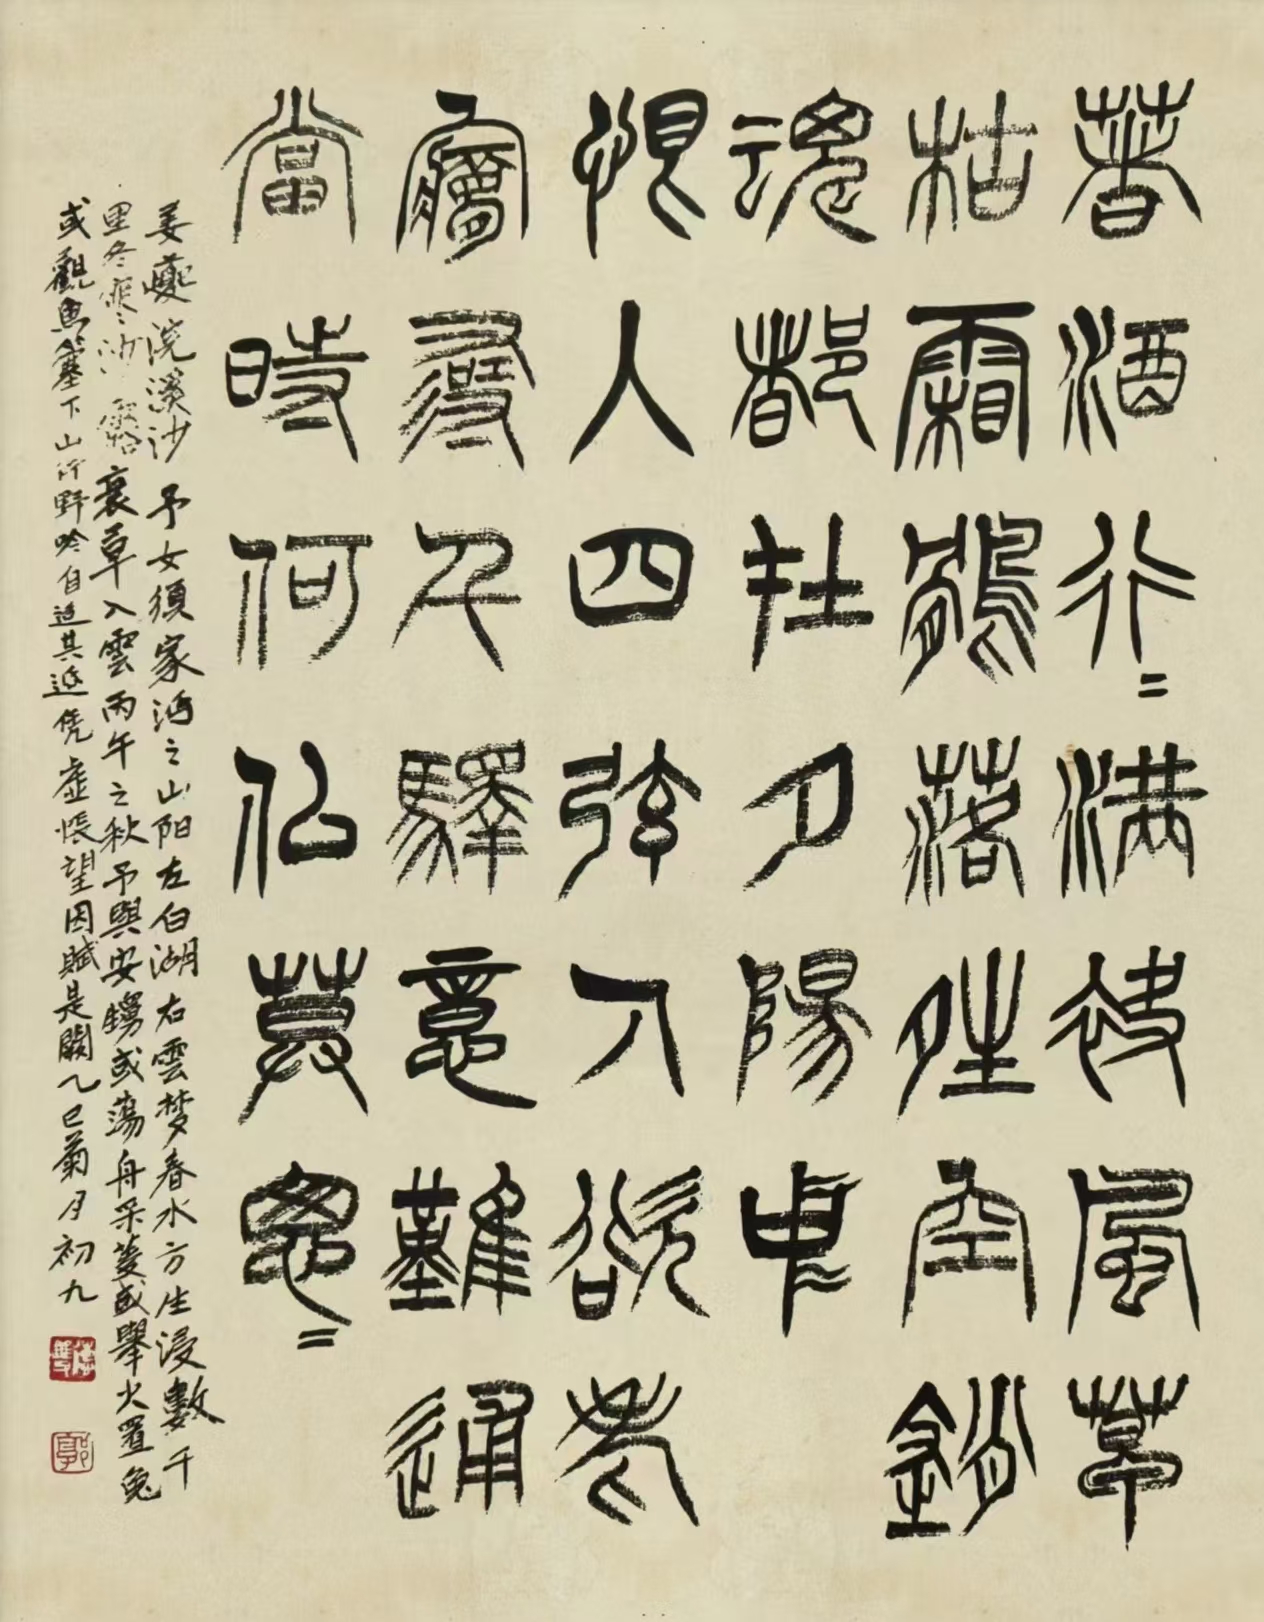 著酒行〓滿袂風草
枯霜鶻落晴空銷
魂都在夕陽中
恨人四弦入欲老
夢尋千驛意難通
當時何似莫悤〓
姜夔浣溪沙 予女須家沔之山阳左白湖右雲梦春水方生浸數千
里冬寒沙露衰草入雲丙午之秋予與安甥或蕩舟采菱或舉火罝兔
或觀魚簺下山行野吟自适其适凭虛悵望因賦是闋乙巳菊月初九